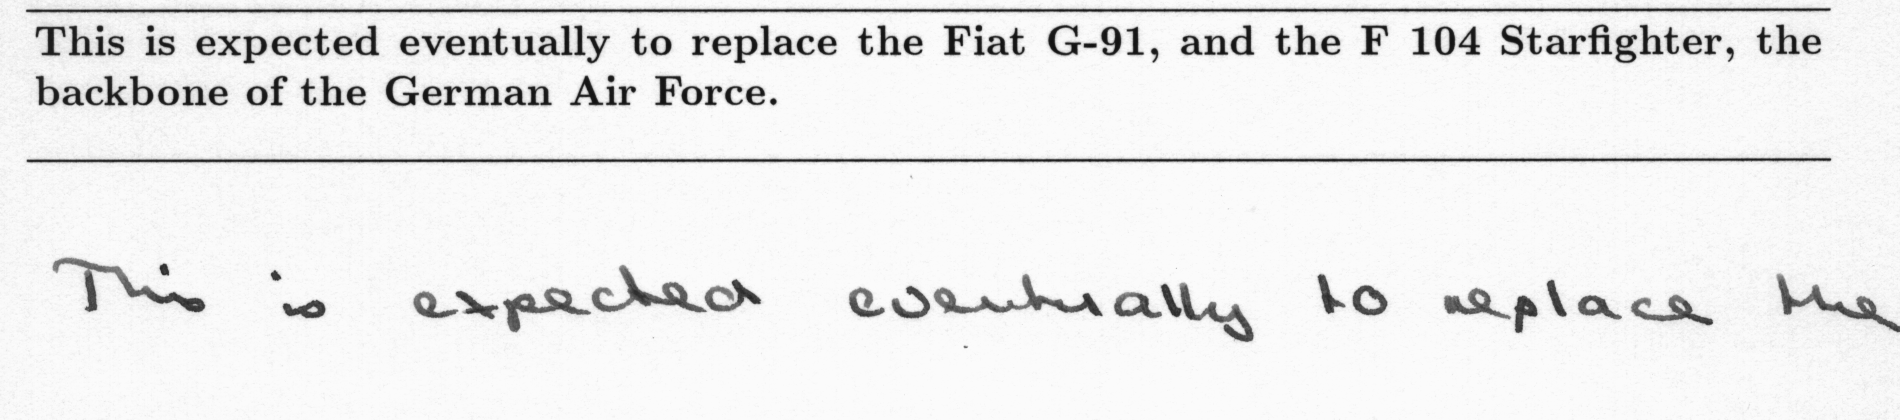 This is expected eventually to replace the Fiat G-91, and the F 104 Starfighter, the
backbone of the German Air Force.
This is expected eventually to replace the